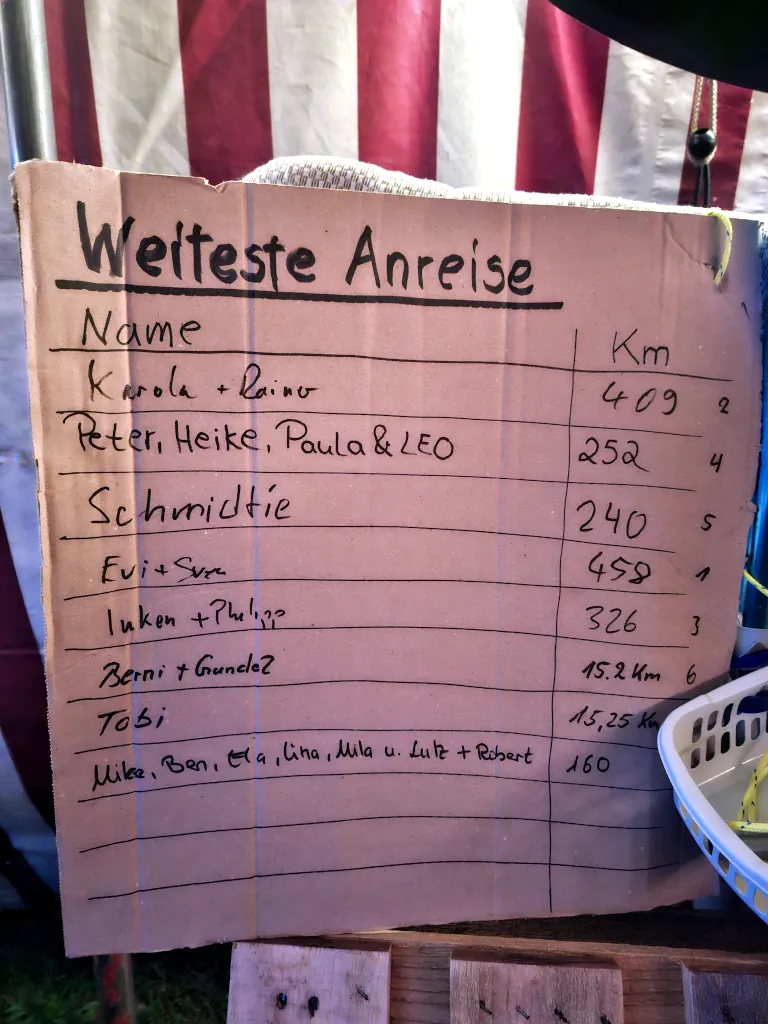 Weiteste Anreise
Name Km
Karola + Rainer 409 2
Peter, Heike, Paula & LEO 252 4
Schmidtie 240 5
Evi + Sven 458 1
Inken + Philipp 326 3
Berni + Gundel 15.2 Km 6
Tobi 15,25 Km
Mike, Ben, Ela, Lina, Mila u. Lutz + Robert 160